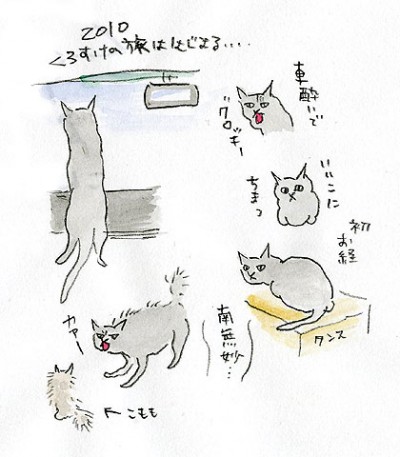 2010
くろすけの旅はじまる....
車酔いで
グロッキー
いいこに
ちまっ
初
お経
タンス
南無妙...
カァー
こもも